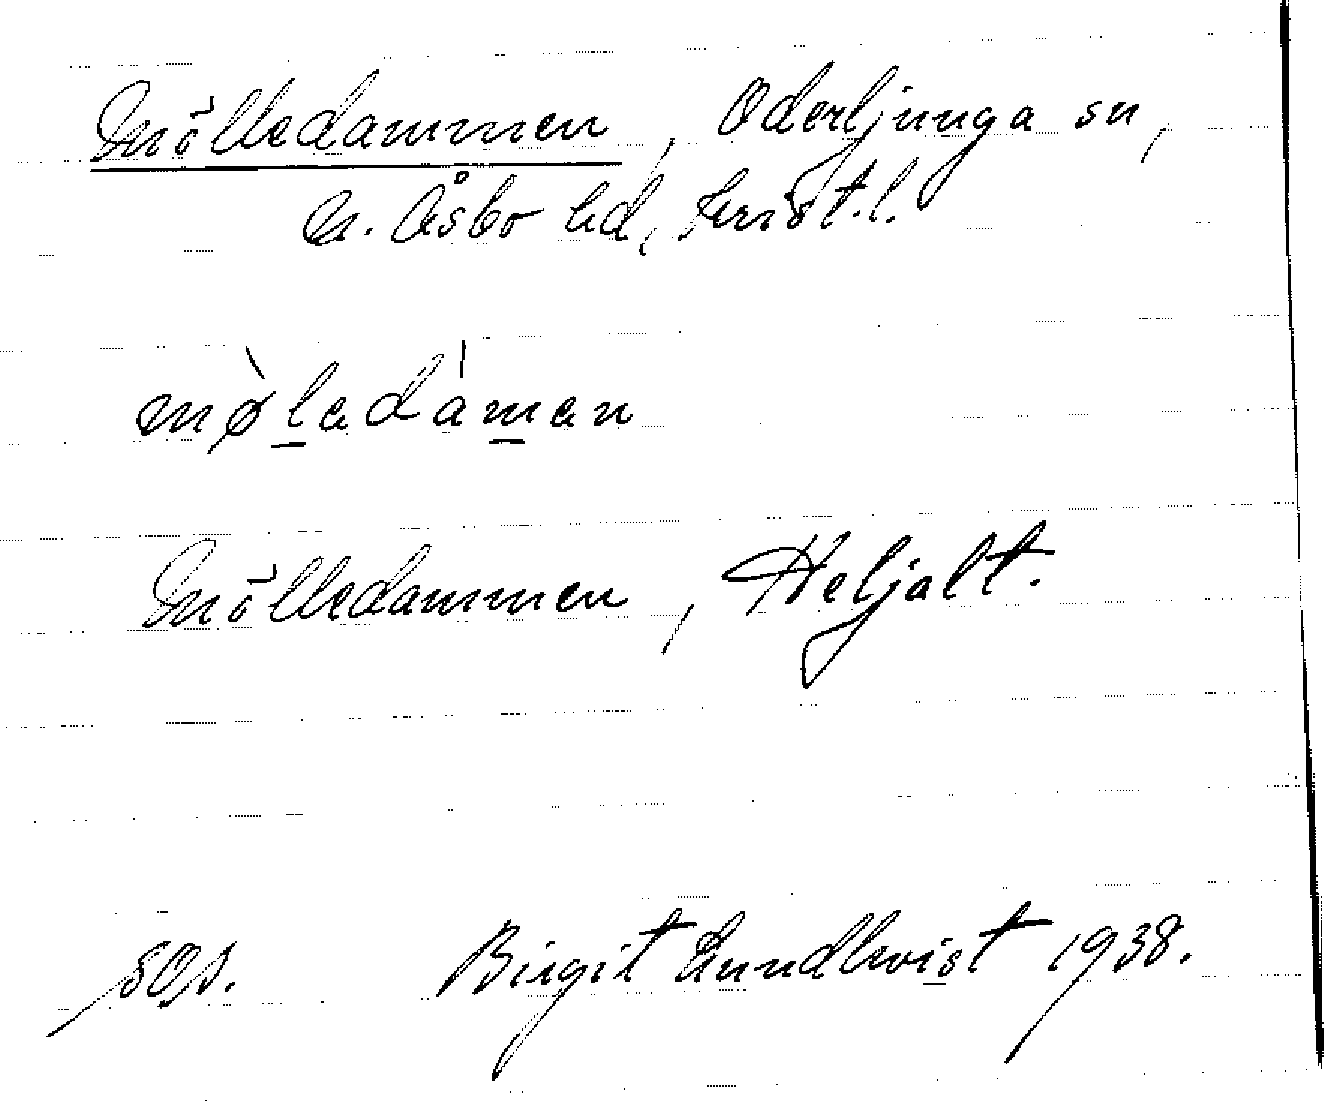 Mölledammen, Oderljunga sn,
N. Åsbo hd, Krist.l.
mø̀ledámen
Mölledammen, Heljalt.
Birgit Lundkvist 1938.